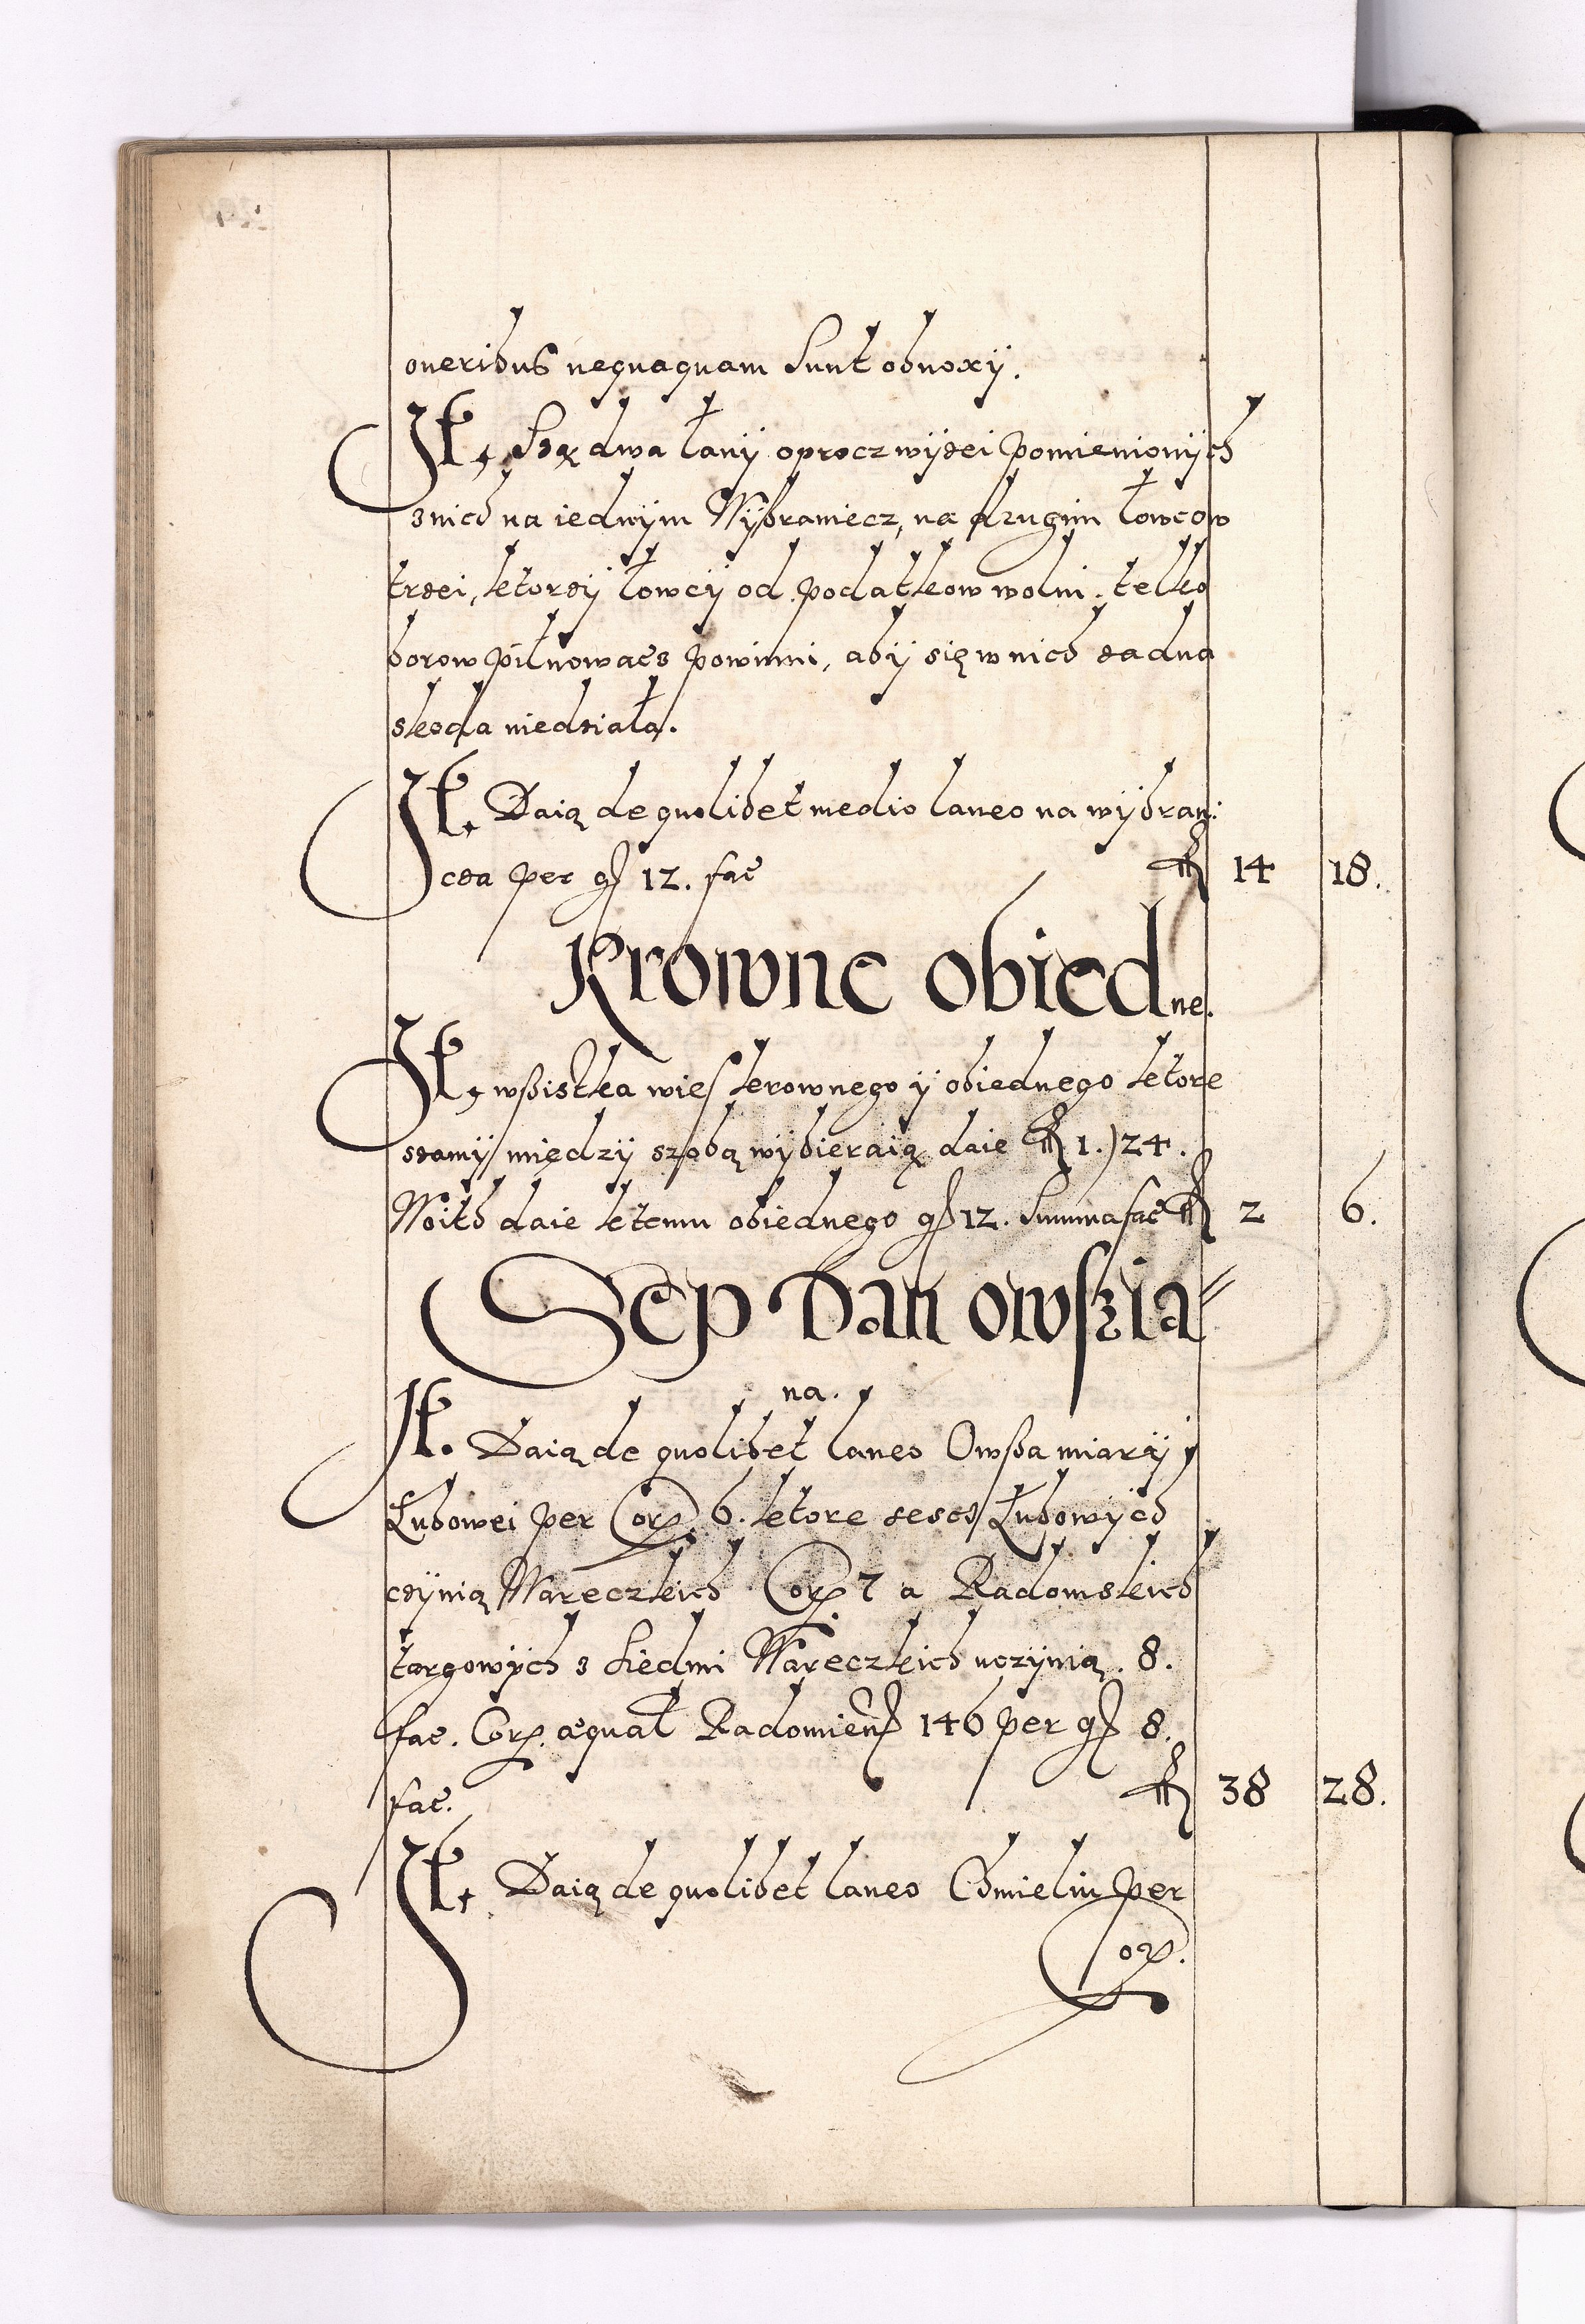 oneribus nequaquam sunt obnoxij.
It. Są dwa łany oprocz wyżei pomienionych
z nich na iednym Wybraniecz, na drugim łowcow
trzei, ktorzy łowcy od podatkow wolni. telko
borow pilnowacz powinni, aby się w nich żadna
skoda niedziała.
It. Daią de quolibet medio laneo na wybran:
cza per gß 12. fac fl 14 18.
Krowne obiedne.
It. wßistka wieś krownego y obiednego ktore
samy między szobą wybieraią daie fl 1.) 24.
Woith daie ktemu obiednego gß 12. Summa fac fl 2 6.
Sep Dań owsżia=
na.
It. Daią de quolibet laneo Owßa miary
Łubowei per Cor. 6. ktore sesch Łubowych
czynią Wareczkich Cor. 7 a Radomskich
targowych z siedmi Wareczkich uczynią. 8.
fac. Cor. æqual Radomienß 146 per gß 8.
fac. fl 38 28.
It. Daią de quolibet laneo Chmieliu per
Cor.